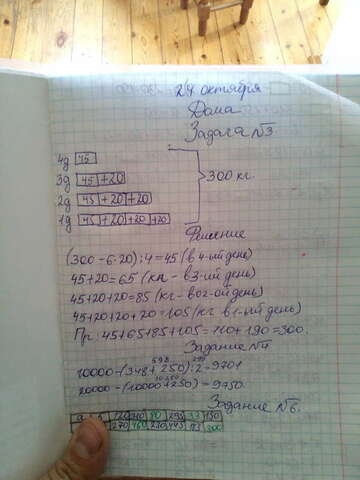 24 октября
Дома
Задача №3.
4д 45
3д 45 +20
2д 45 +20 +20
1д 45 +20 +20 +20
300 кг.
Решение
(300-6·20):4=45 (в 4-ый день)
45+20=65 (кг - в 3-ий день)
45+20+20=85 (кг - во 2-ой день)
45+20+20+20=105 (кг в 1-ый день)
Пр: 45+65+85+105=110+190=300.
Задание №4
598 299
10000-(348+250):2=9701
10250
20000-(10000+250)=9750.
Задание №6.
270 460 230 443 113 300